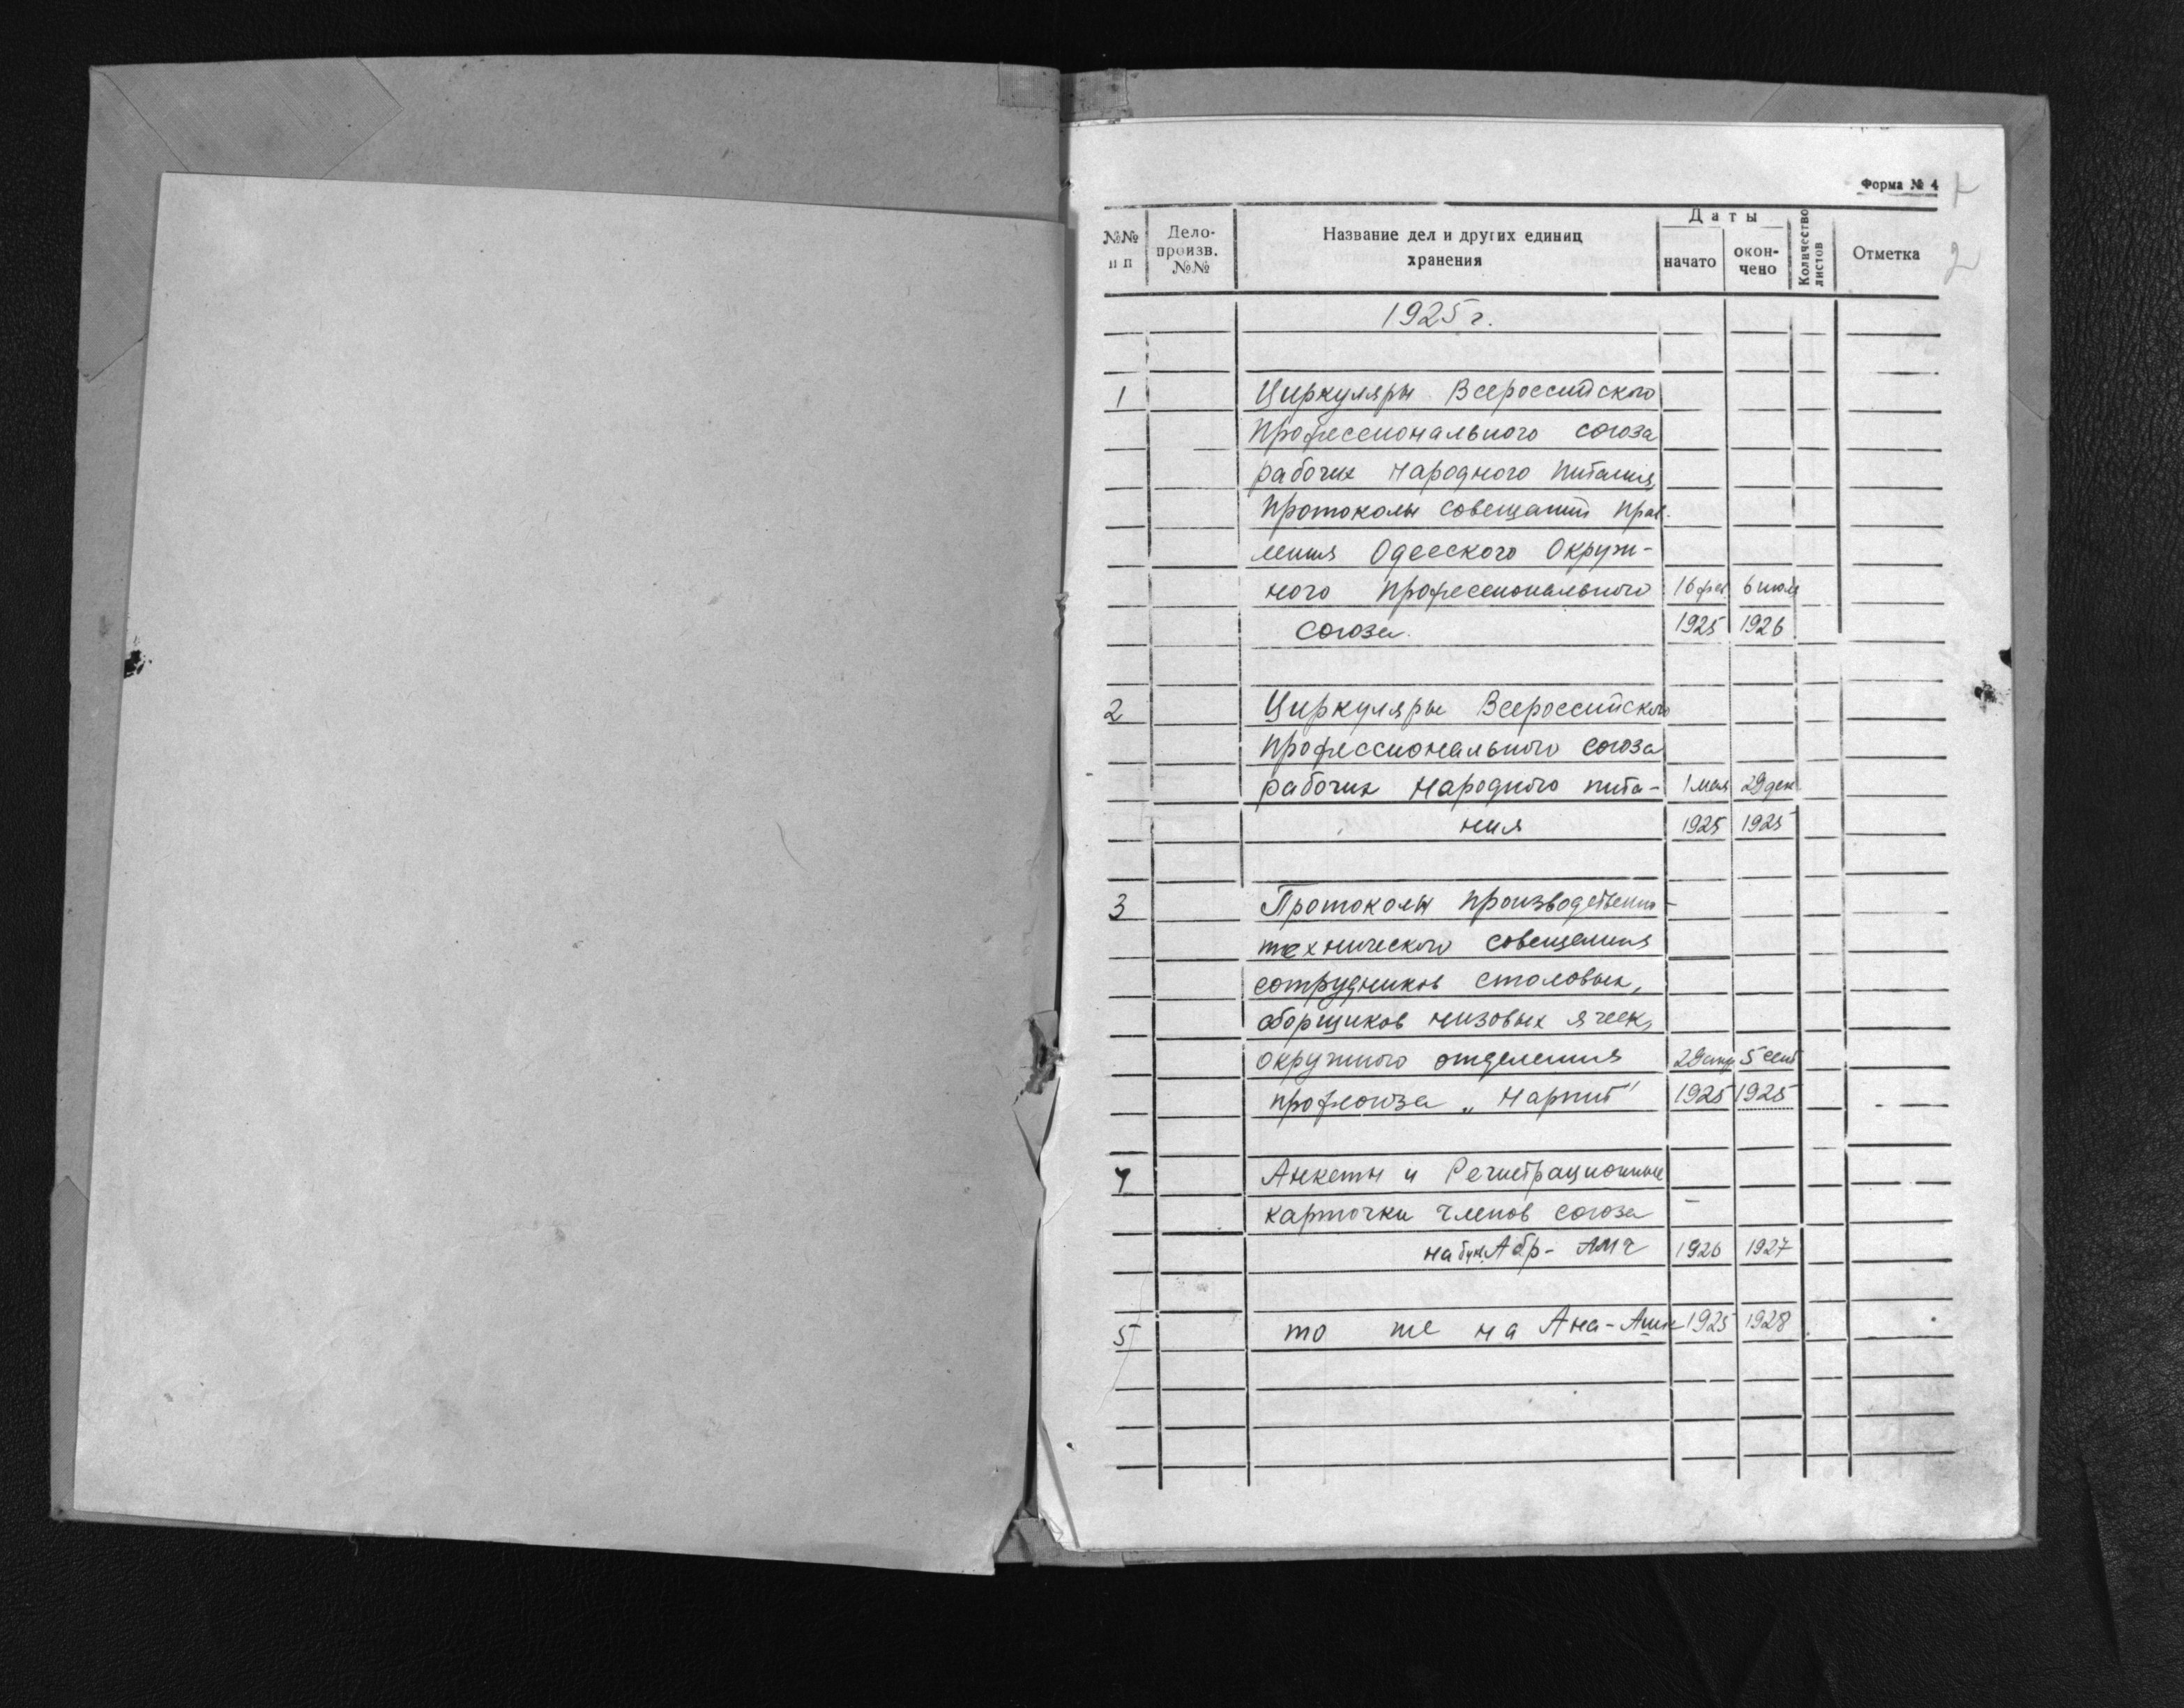 Форма № 4
2
№№ п п
Дело-произв. №№
Название дел и других единиц хранения
Даты
начато
окон-чено
Количество листов
Отметка
1925 г.
1 Циркуляры Всероссийского
профессионального союза
рабочих народного питания,
протоколы совещаний прав-
ления Одесского Окруж-
ного профессионального 16 фев 6 июля
союза. 1925 1926
2 Циркуляры Всероссийского
профессионального союза
рабочих народного пита- 1 мая 29 дек
ния 1925 1925
3 Протоколы производственно-
технического совещания
сотрудников столовых,
сборщиков низовых ячеек,
окружного отделения 5 сент
профсоюза „Нарпит" 1925 1925
4 Анкеты и Регистрационные
карточки членов союза
на бук. Абр- Амч 1926 1927
5 то же на Ана- 1925 1928